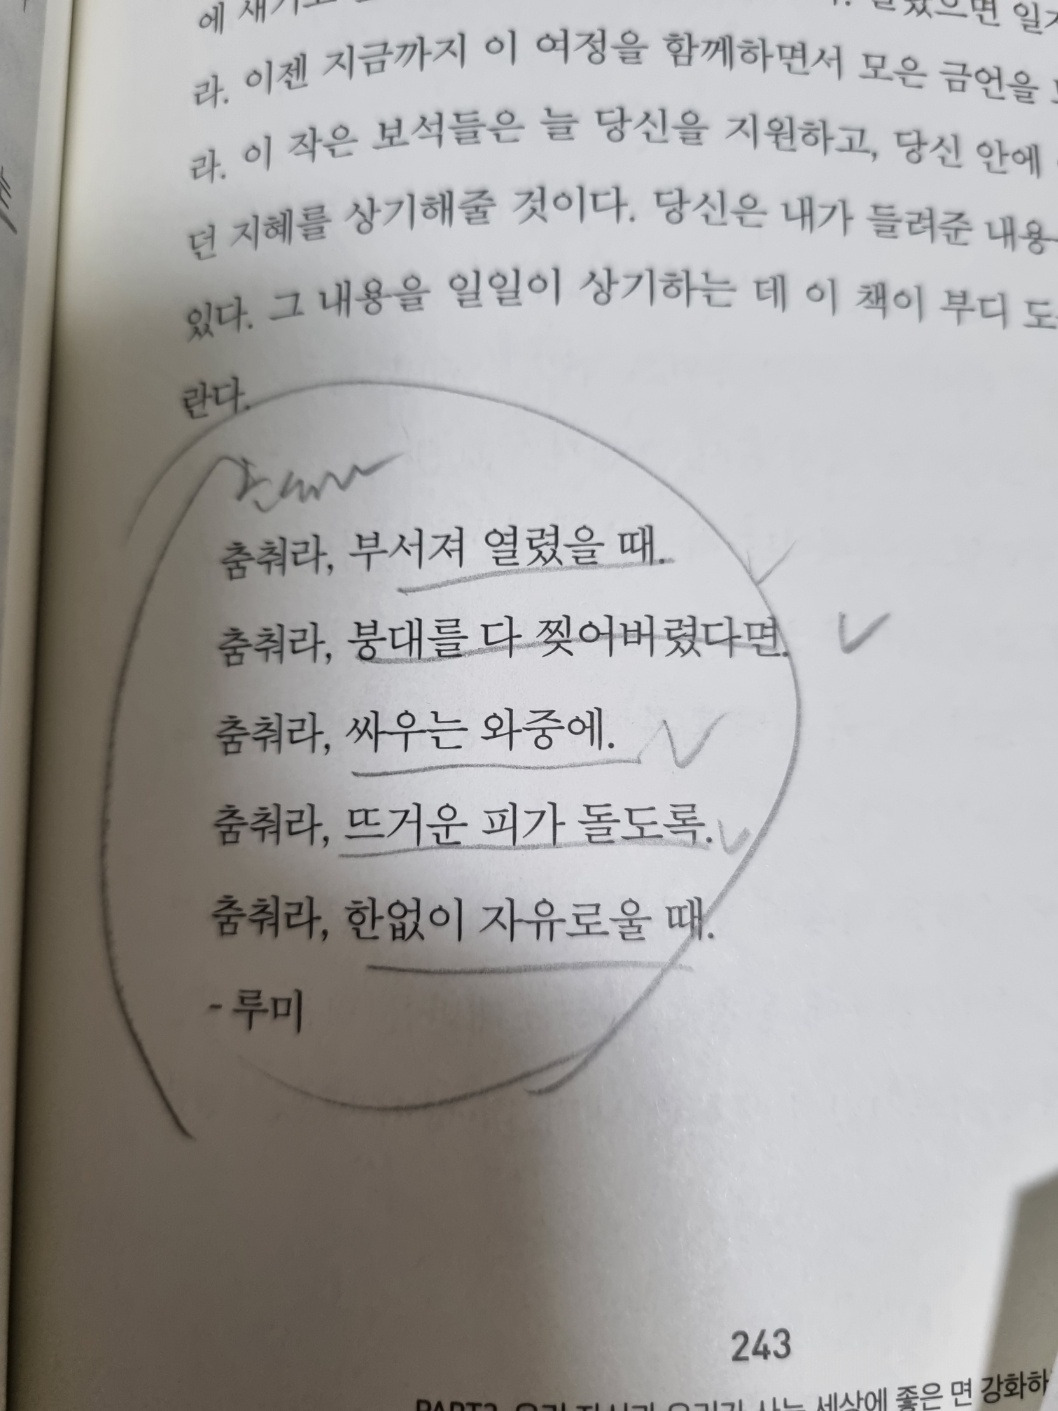 에 새기고
으면 일
라. 이젠 지금까지 이 여정을 함께하면서 모은 금언을
라. 이 작은 보석들은 늘 당신을 지원하고, 당신 안에
던 지혜를 상기해줄 것이다. 당신은 내가 들려준 내용
있다. 그 내용을 일일이 상기하는 데 이 책이 부디
란다.
춤춰라, 부서져 열렸을 때.
춤춰라, 붕대를 다 찢어버렸다면.
춤춰라, 싸우는 와중에.
춤춰라, 뜨거운 피가 돌도록.
춤춰라, 한없이 자유로울 때.
- 루미
243
PART3 우리 자신과 우리가 사는 세상에 좋은 면 강화하